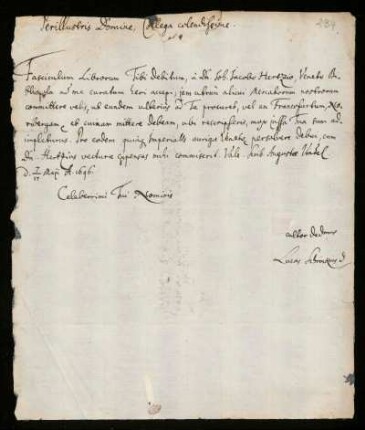 Perillustris Domine, Collega colendissime.
284
Fasciculum Librorum Tibi debitum, à Dn. Joh. Jacobo Hertzio, Venetis
ad me curatum heri accepi; jam utrum alicui Mercatorum nostrorum
committere velis, ut eundem ulterius ad Te procuret, vel an Francofurtum,
et cuinam mittere debeam, ubi rescripseris, mox jussa Tua sum
impleturus. Pro eodem quinque Imperiales aurigae persolvere debui, cum
Dn. Hertzius vecturae expensas mihi commiserit. Vale. Dab. Augustae Vindel.
d. Maji A. 1696.
Celeberrimi Tui Nominis
cultor
Lucas Schröckius D.